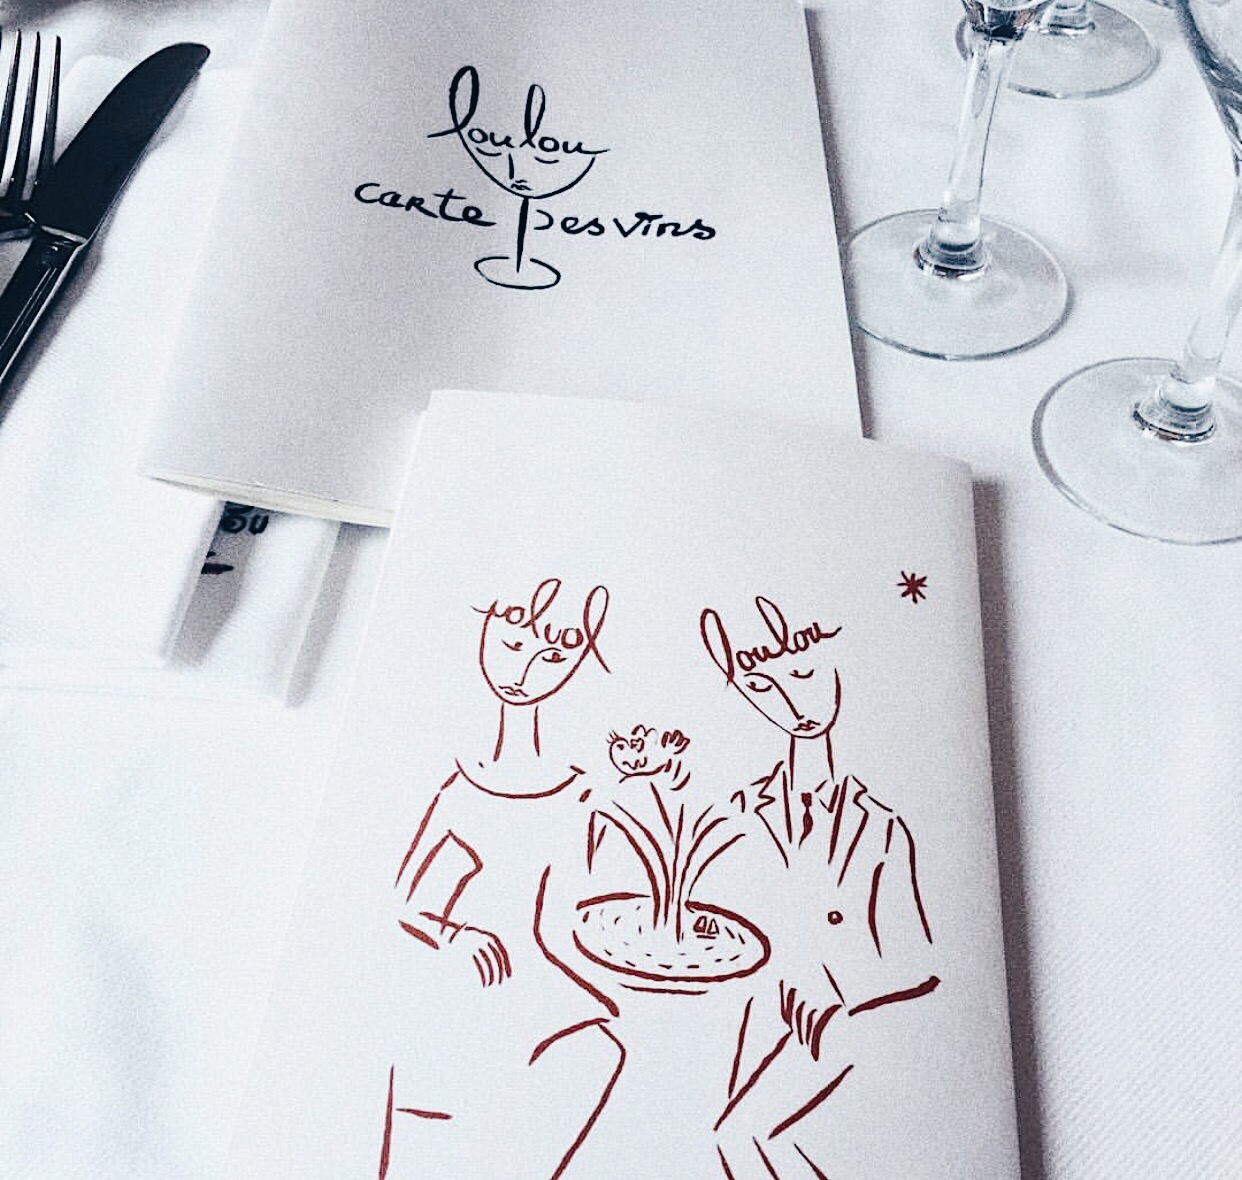 loulou
carte Des vins
ou
loulou
loulou